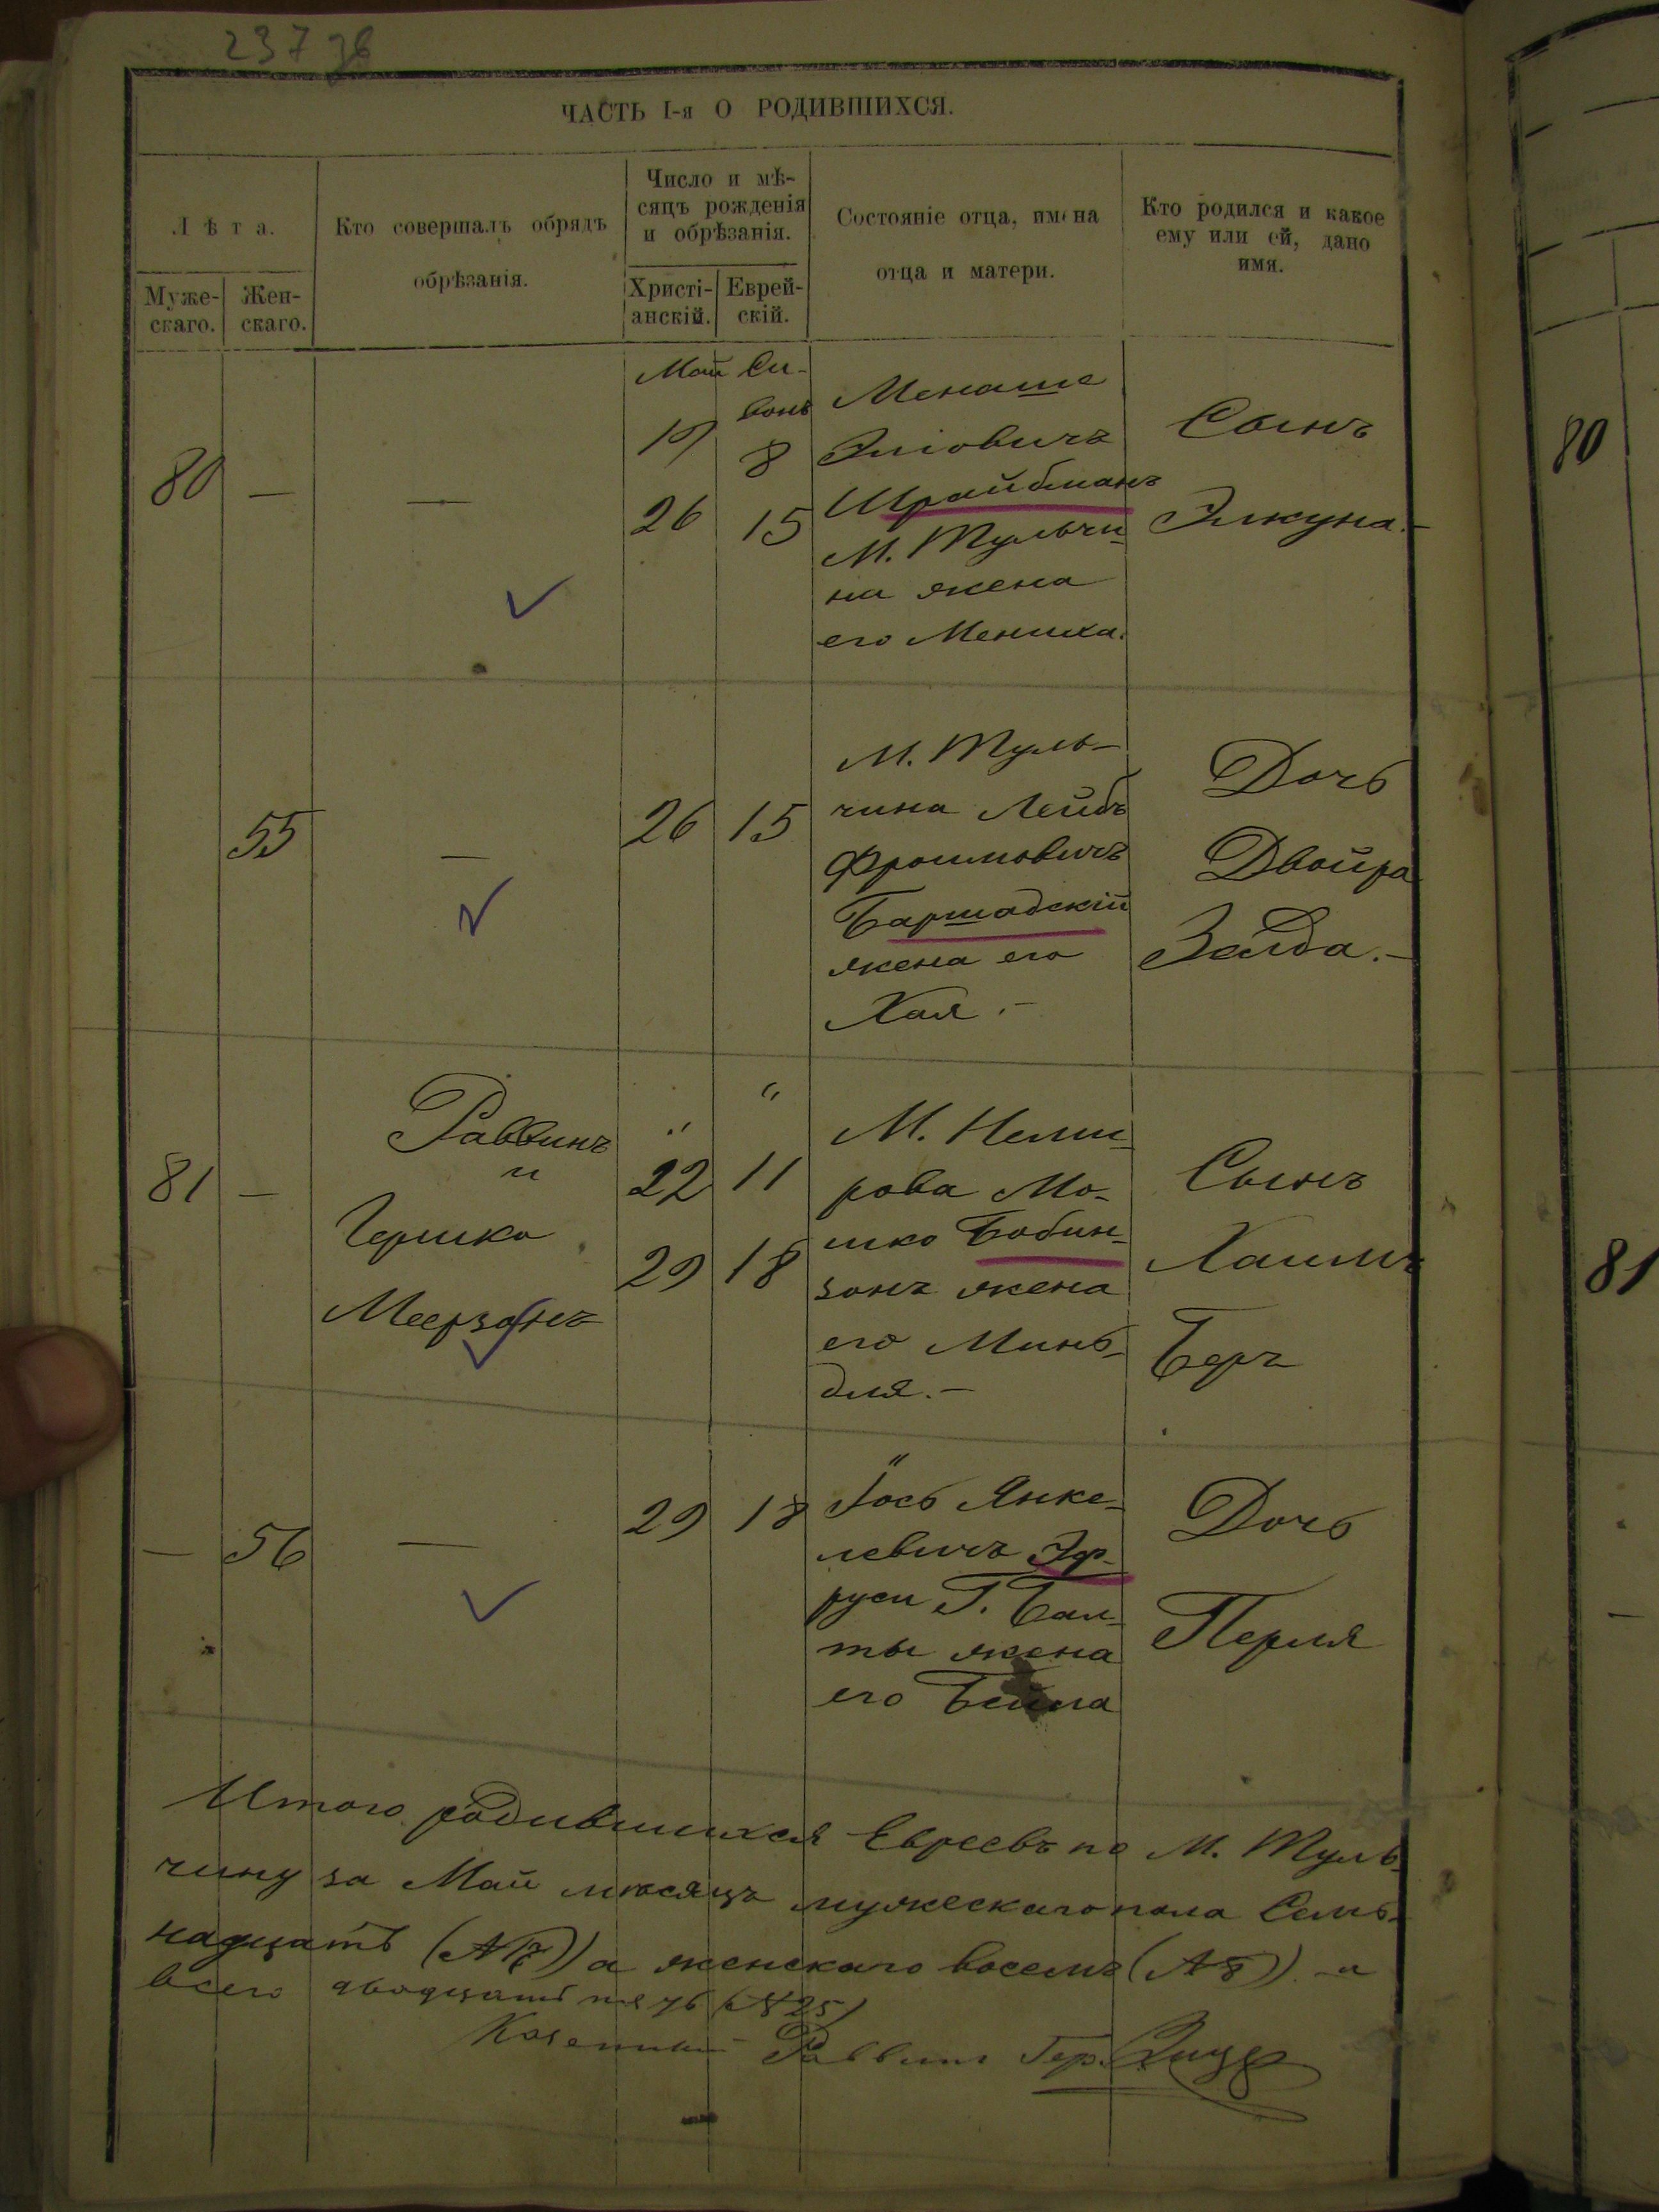 237
ЧАСТЬ I-я О РОДИВШИХСЯ.
Лѣта.
Муже-
скаго.
Жен-
скаго.
Кто совершалъ обрядъ
обрѣзанія.
Число и мѣ-
сяцъ рожденія
и обрѣзанія.
Христі-
анскій.
Еврей-
скій.
Состояніе отца, имена
отца и матери.
Кто родился и какое
ему или ей, дано
имя.
80 — —
Май
19
26
Си-
вонъ
8
15
Менаше
Эліовичъ
Шрайбманъ
М. Тульчи-
на жена
его Мениха.
Сынъ
Элкуна.-
80
55
—
26 15
М. Туль-
чина Лейбъ
Фроимовичъ
Баршадскій
жена его
Хая.-
Дочь
Двойра
Зелда.-
81 —
Раввинъ
и
Гершко
Меерзонъ
" "
22 11
29 18
М. Неми-
рова Мо-
шко Бобин-
зонъ жена
его Минь-
для.-
Сынъ
Хаимъ
Беръ
81
— 56 —
29 18
Іось Янке-
левичъ Эф-
руси Г. Бал-
ты жена
его Бейла
Дочь
Перля
—
Итого родившихся Евреевъ по М. Туль-
чину за Май мѣсяцъ мужескаго пола Семь-
надцать а женскаго восемь (№8) а
всего двадцать пять (№25)
Казенный Раввинъ Гер.